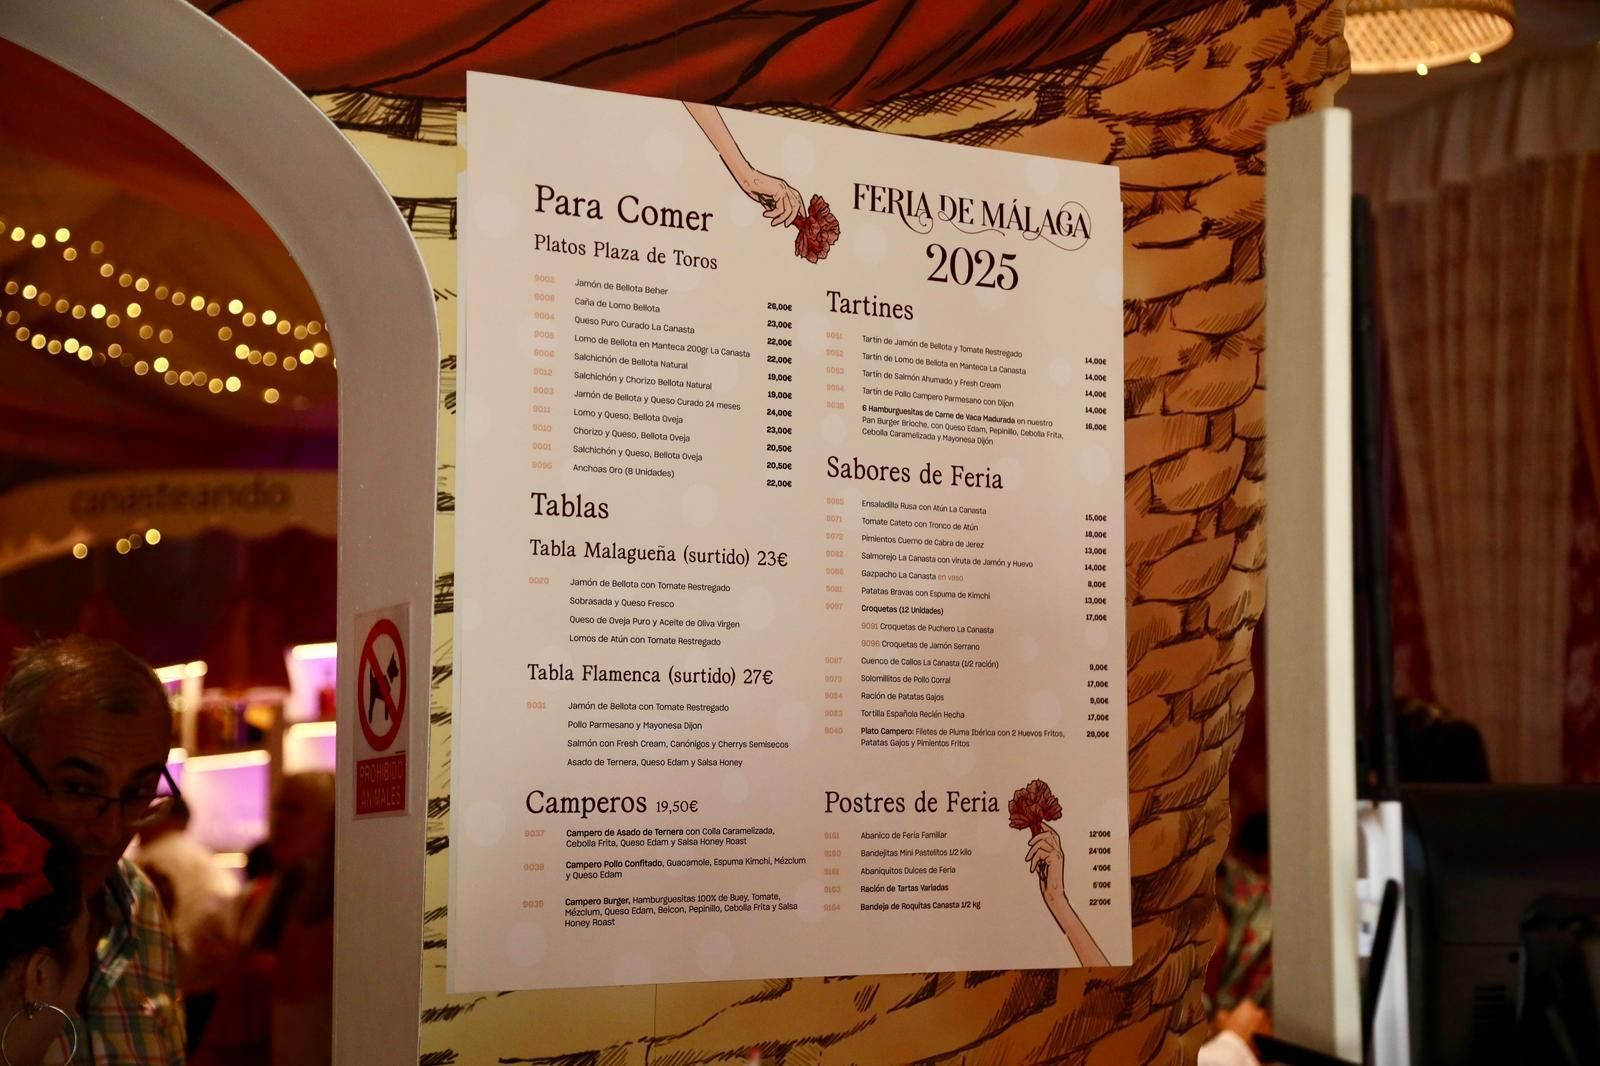 Para Comer
Platos Plaza de Toros
9002 Jamón de Bellota Beher 26,00€
9008 Caña de Lomo Bellota 23,00€
9004 Queso Puro Curado La Canasta 22,00€
9005 Lomo de Bellota en Manteca 200gr La Canasta 22,00€
9006 Salchichón de Bellota Natural 19,00€
9012 Salchichón y Chorizo Bellota Natural 19,00€
9003 Jamón de Bellota y Queso Curado 24 meses 24,00€
9011 Lomo y Queso, Bellota Oveja 23,00€
9010 Chorizo y Queso, Bellota Oveja 20,50€
9001 Salchichón y Queso, Bellota Oveja 20,50€
9095 Anchoas Oro (8 Unidades) 22,00€
Tablas
Tabla Malagueña (surtido) 23€
9020 Jamón de Bellota con Tomate Restregado
Sobrasada y Queso Fresco
Queso de Oveja Puro y Aceite de Oliva Virgen
Lomos de Atún con Tomate Restregado
Tabla Flamenca (surtido) 27€
9031 Jamón de Bellota con Tomate Restregado
Pollo Parmesano y Mayonesa Dijon
Salmón con Fresh Cream, Canónigos y Cherrys Semisecos
Asado de Ternera, Queso Edam y Salsa Honey
Camperos 19,50€
9037 Campero de Asado de Ternera con Colla Caramelizada,
Cebolla Frita, Queso Edam y Salsa Honey Roast
9038 Campero Pollo Confitado, Guacamole, Espuma Kimchi, Mézclum
y Queso Edam
9039 Campero Burger, Hamburguesitas 100% de Buey, Tomate,
Mézclum, Queso Edam, Beicon, Pepinillo, Cebolla Frita y Salsa
Honey Roast
FERIA DE MÁLAGA
2025
Tartines
9051 Tartín de Jamón de Bellota y Tomate Restregado 14,00€
9052 Tartín de Lomo de Bellota en Manteca La Canasta 14,00€
9053 Tartín de Salmón Ahumado y Fresh Cream 14,00€
9054 Tartín de Pollo Campero Parmesano con Dijon 14,00€
9036 6 Hamburguesitas de Carne de Vaca Madurada en nuestro 16,00€
Pan Burger Brioche, con Queso Edam, Pepinillo, Cebolla Frita,
Cebolla Caramelizada y Mayonesa Dijón
Sabores de Feria
9065 Ensaladilla Rusa con Atún La Canasta 15,00€
9071 Tomate Cateto con Tronco de Atún 18,00€
9072 Pimientos Cuerno de Cabra de Jerez 13,00€
9082 Salmorejo La Canasta con viruta de Jamón y Huevo 14,00€
Gazpacho La Canasta en vaso 8,00€
9081 Patatas Bravas con Espuma de Kimchi 13,00€
9097 Croquetas (12 Unidades) 17,00€
9091 Croquetas de Puchero La Canasta
9096 Croquetas de Jamón Serrano
9087 Cuenco de Callos La Canasta (1/2 ración) 9,00€
9073 Solomillitos de Pollo Corral 17,00€
9084 Ración de Patatas Gajos 9,00€
9083 Tortilla Española Recién Hecha 17,00€
9040 Plato Campero: Filetes de Pluma Ibérica con 2 Huevos Fritos, 29,00€
Patatas Gajos y Pimientos Fritos
Postres de Feria
9151 Abanico de Feria Familiar 12'00€
9160 Bandejitas Mini Pastelitos 1/2 kilo 24'00€
9161 Abaniquitos Dulces de Feria 4'00€
9163 Ración de Tartas Variadas 5'00€
9164 Bandeja de Roquitas Canasta 1/2 kg 22'00€
canasteando
PROHIBIDO
ANIMALES